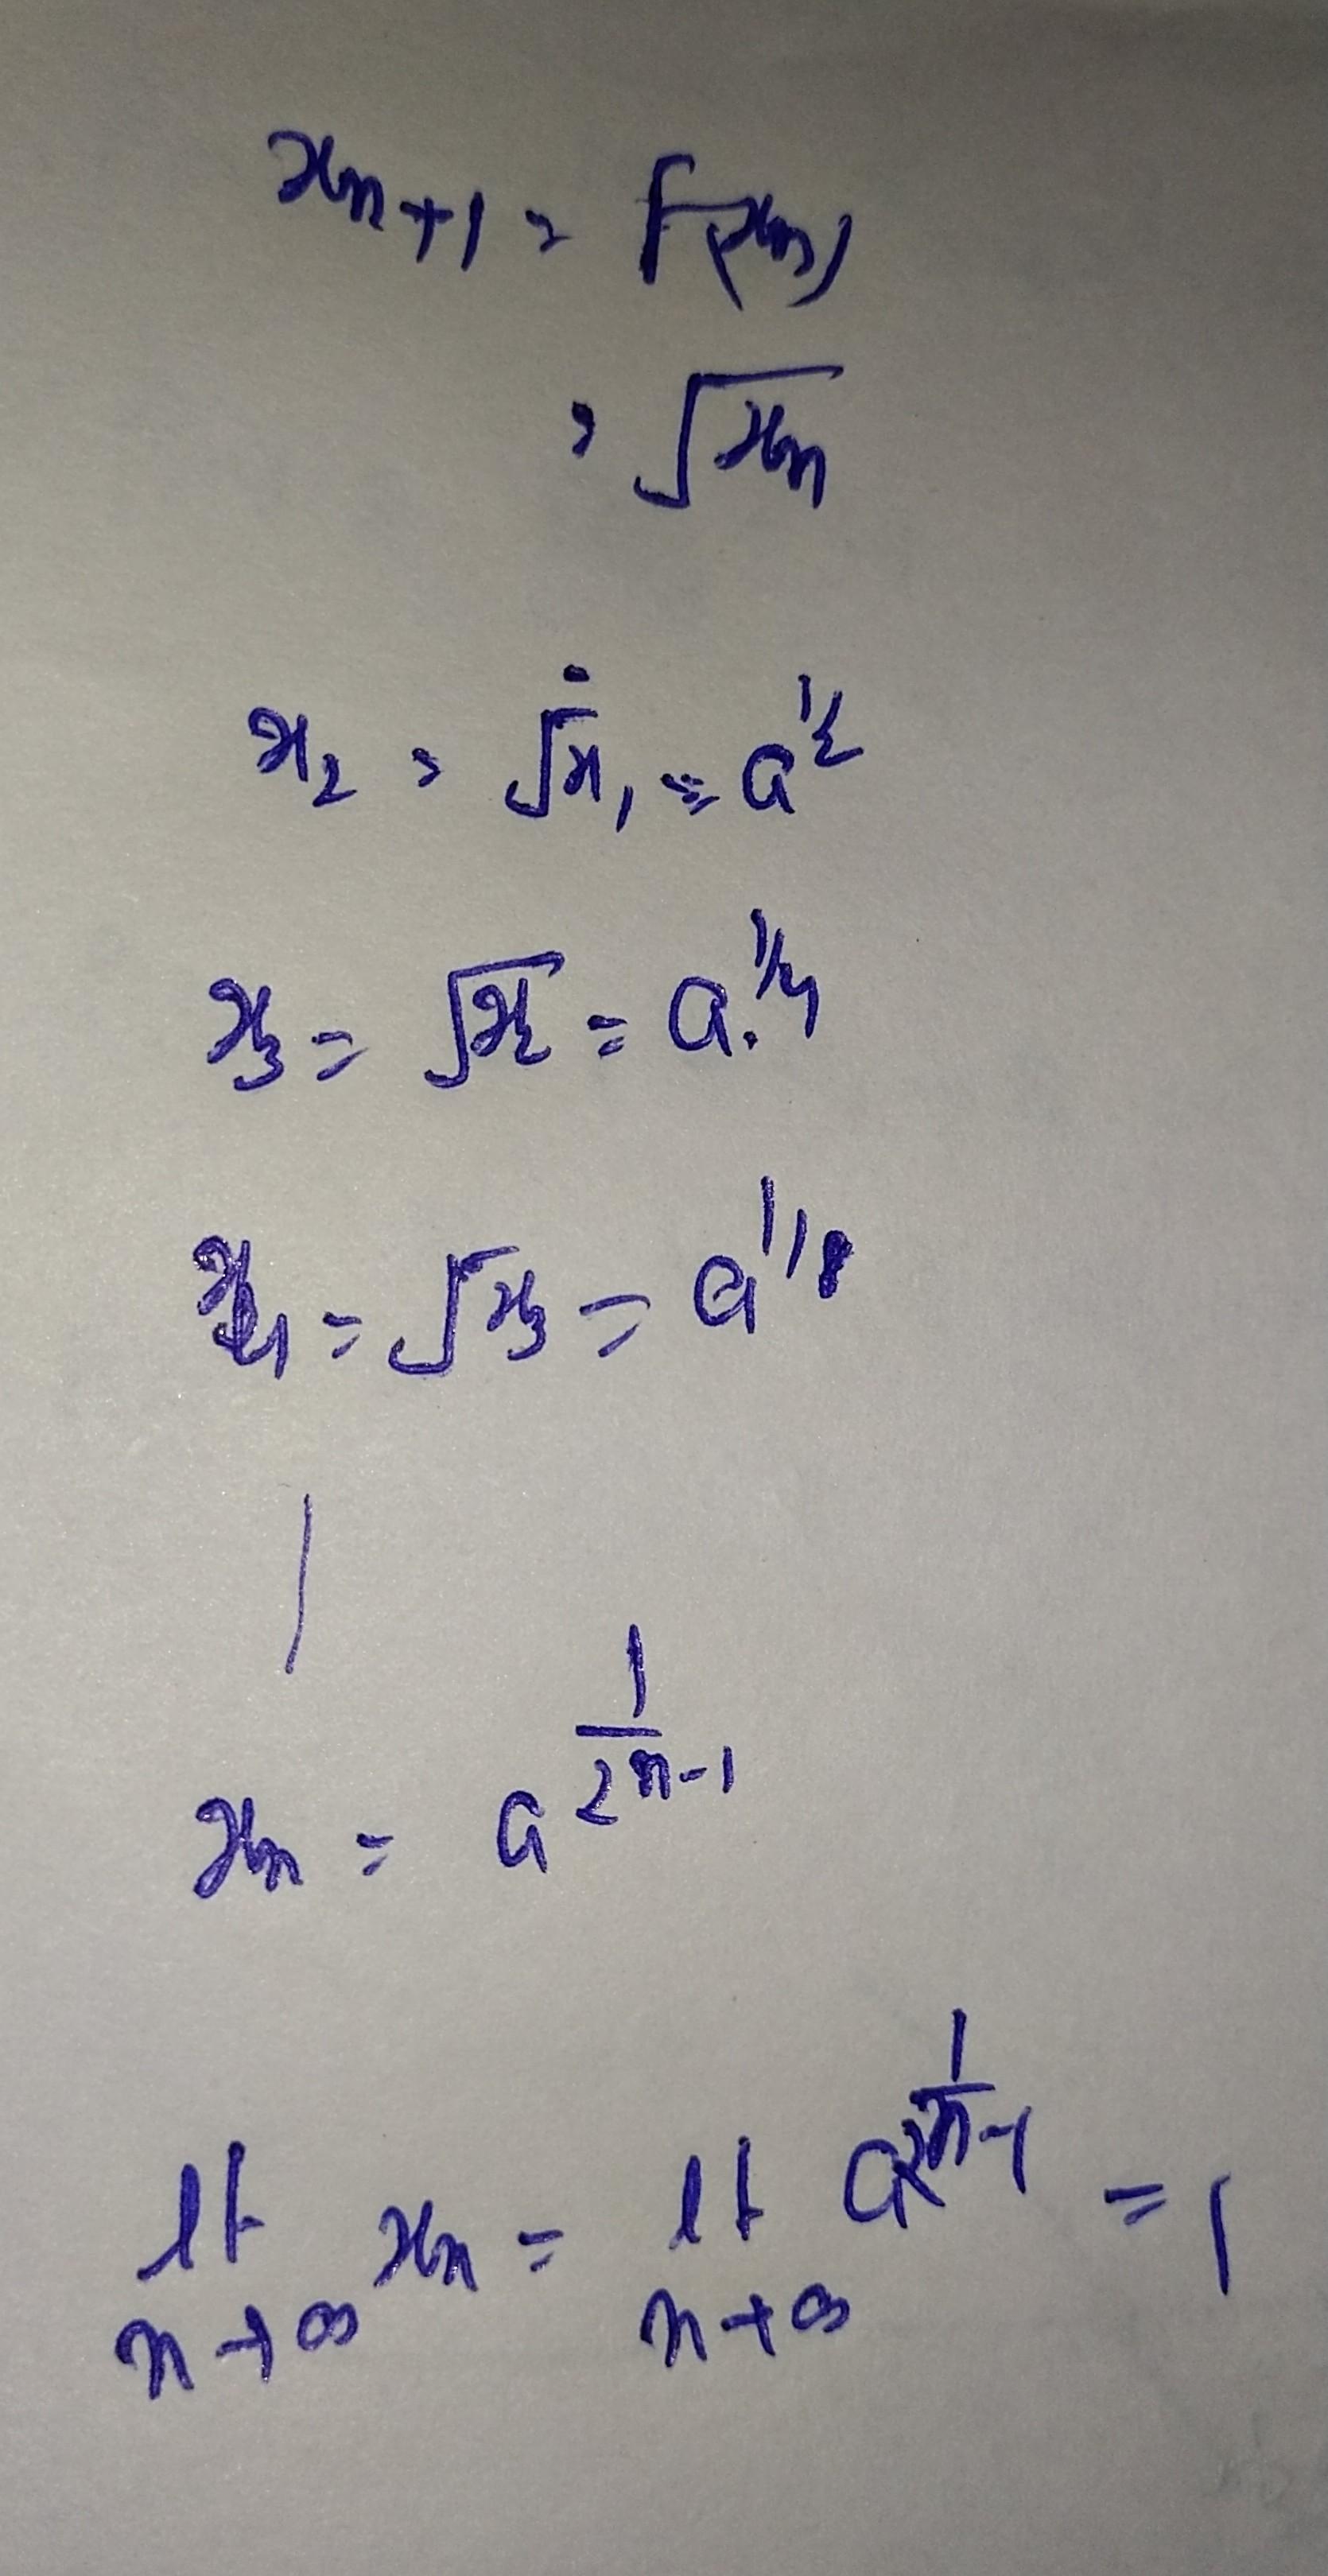 xₙ₊₁ = f(xₙ)
= √xₙ
x₂ = √x₁ = a^½
x₃ = √x₂ = a.^¼
x₄ = √x₃ = a^1/8
|
xₙ = a^(1/2ⁿ⁻¹)
lt n→∞ xₙ = lt n→∞ a^(1/2ⁿ⁻¹) = 1